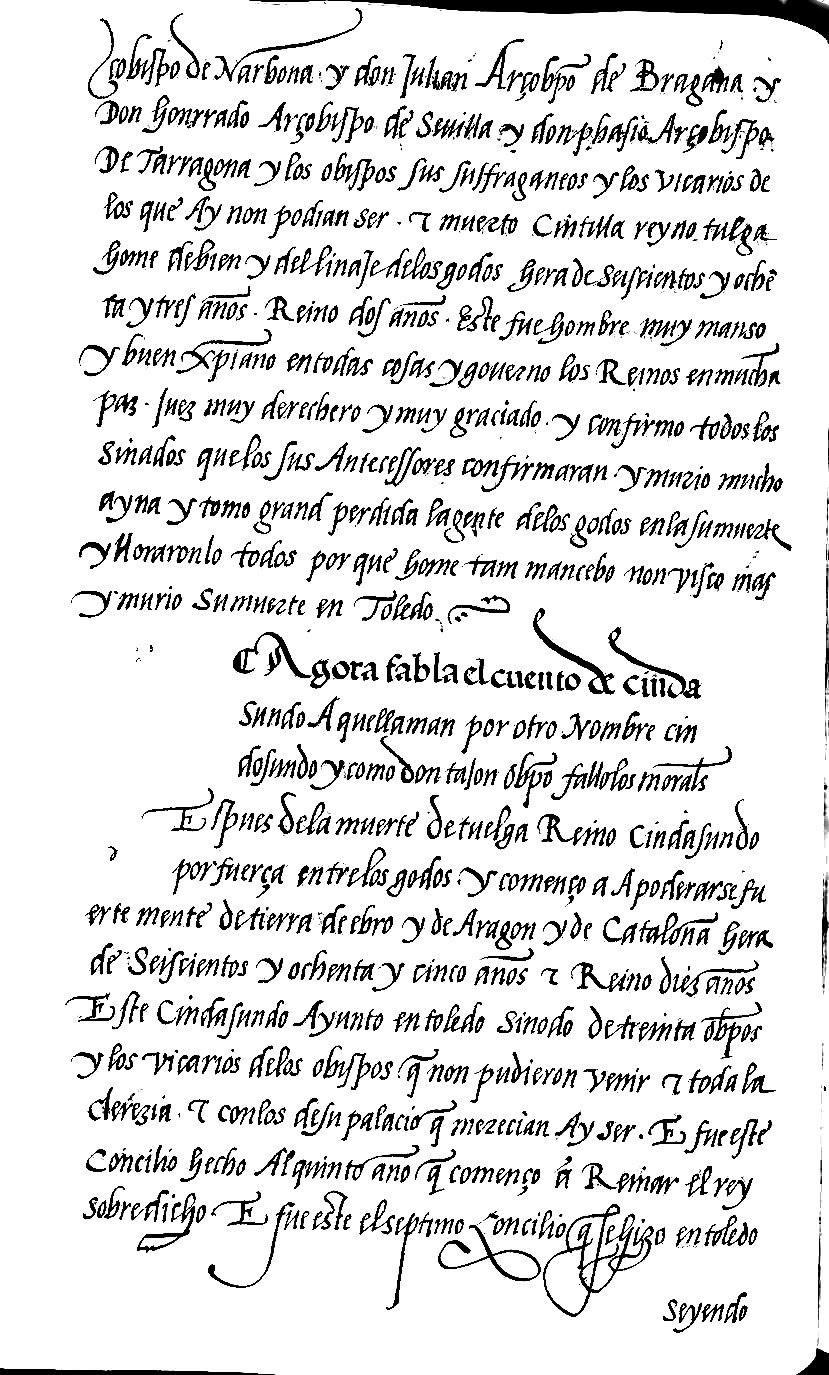 çobispo de Narbona y don Julian Arçobpō de Bragana y
Don honrrado Arçobispo de Sevilla y don phasio Arçobispo
De Tarragona y los obispos sus suffraganeos y los vicarios de
los que Ay non podian ser . τ muerto Cintilla reyno tulga
home de bien y del linaJe delos godos hera de Seiscientos y ochē
ta y tres años . Reino dos años . Este fue hombre muy manso
y buen xp̄iano en todas cosas y governo los Reinos en mucha
paz . Juez muy derechero y muy graciado . y confirmo todos los
Sinados que los sus Antecessores confirmaran . y murio mucho
ayna y tomo grand perdida la gente delos godos en la su muerte
y lloraronlo todos por que home tam mancebo non visco mas
y murio Su muerte en Toledo
Agora fabla el cuento de cinda
sundo A quellaman por otro Nombre cin
dosundo y como don taJon obpō fallo los morals
Espues dela muerte de tuelga Reino Cindasundo
por fuerça entre los godos . y començo a Apoderarse fu
erte mente de tierra de ebro y de Aragon y de Cataloña hera
de Seiscientos y ochenta y cinco años τ Reino diez años
Este Cindasundo Ayunto en toledo Sinodo de treinta obp̄os
y los vicarios delos obispos q̄ non pudieron venir τ toda la
clerezia . τ con los de su palacio q̄ merecian Ay ser . E fue este
Concilio hecho Al quinto año q̄ començo ā Reinar el rey
sobredicho . E fue este el septimo Concilio q̄ se hizo en toledo
seyendo